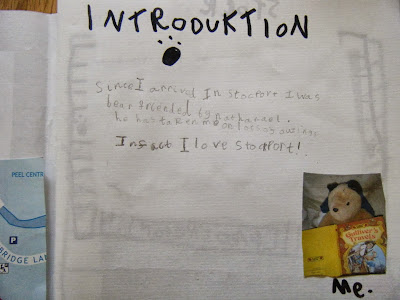 INTRODUKTION
Since I arrivd In stocport I was
bear friended by nathanael.
he has taken me on loss of outings
Infact I love stocport!
PEEL CENTR
P
BRIDGE LA
Gulliver's
Travels
Me.